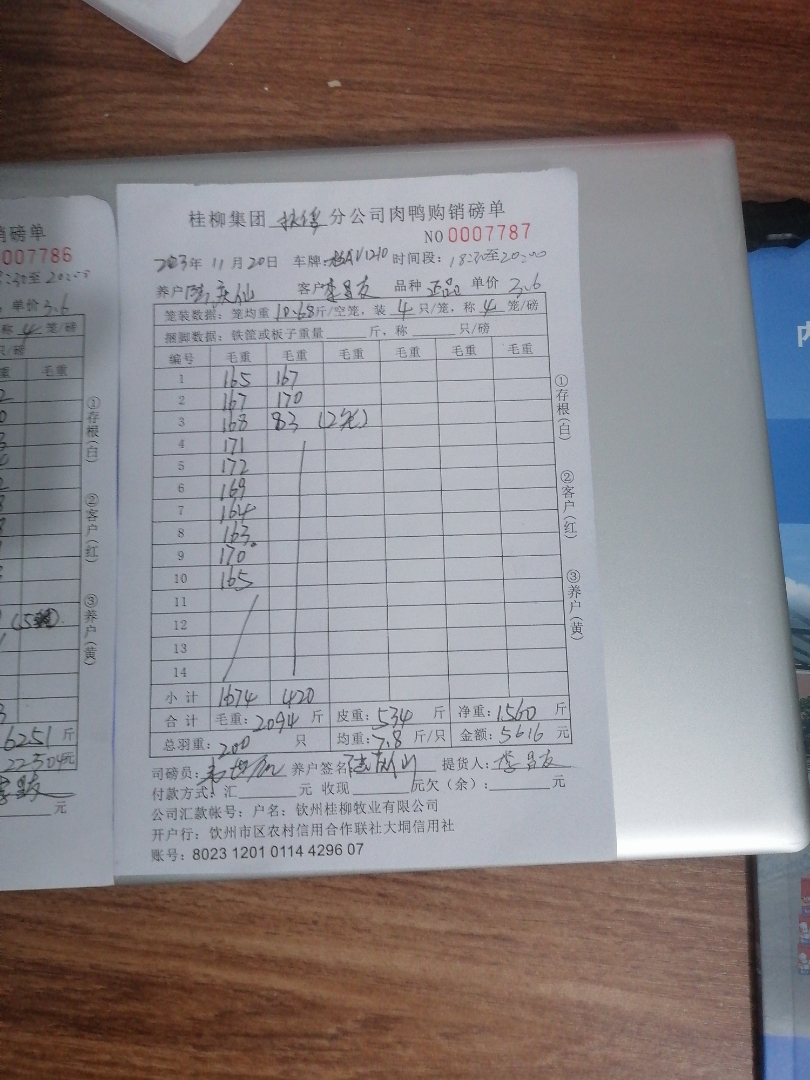 销磅单
0007786
18:30至20:00
单价3.6
称4笼/磅
只/磅
重 毛重
①存根(白)
②客户(红)
③养户(黄)
6251斤
22504元
元
桂柳集团 扶绥 分公司肉鸭购销磅单
NO 0007787
2023年 11月20日 车牌: 时间段: 18:30至20:00
养户 客户李昌友 品种 正品 单价 3.6
笼装数据: 笼均重 10.68斤/空笼, 装 4 只/笼, 称 4 笼/磅
捆脚数据: 铁筐或板子重量 斤, 称 只/磅
编号 毛重 毛重 毛重 毛重 毛重 毛重
1 165 167
2 167 170
3 168 83 (2笼)
4 171
5 172
6 169
7 164
8 163
9 170
10 165
11
12
13
14
小计 1674 420
合计 毛重: 2094 斤 皮重: 534 斤 净重: 1560 斤
总羽重: 200 只 均重: 7.8 斤/只 金额: 5616 元
司磅员: 养户签名 提货人: 李昌友
付款方式: 汇 元 收现 元欠(余): 元
公司汇款帐号: 户名: 钦州桂柳牧业有限公司
开户行: 钦州市区农村信用合作联社大垌信用社
账号: 8023 1201 0114 4296 07
①存根(白)
②客户(红)
③养户(黄)
内